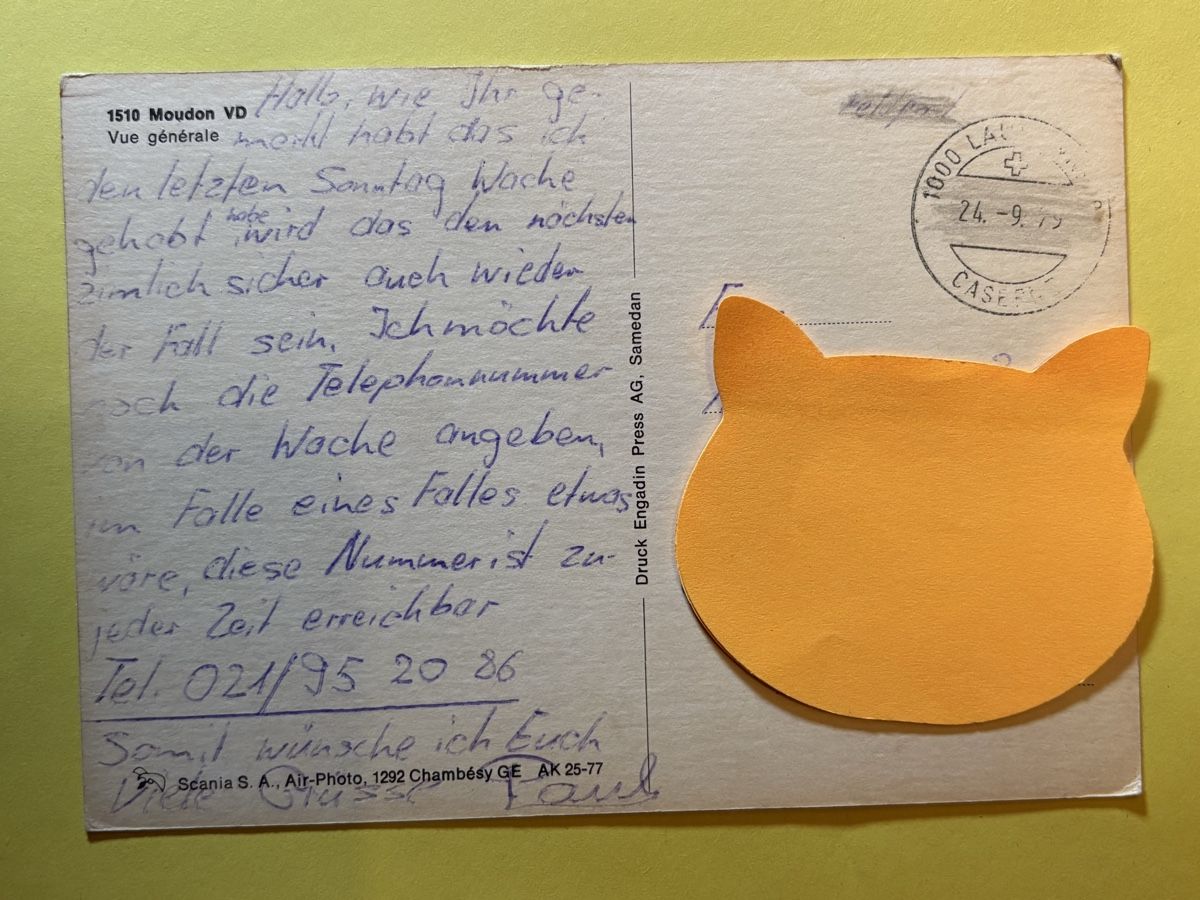 1510 Moudon VD
Vue générale
Hallo, wie Ihr ge-
merkt habt das ich
den letzten Sonntag Wache
gehabt habe wird das den nächsten
zimlich sicher auch wieder
der Fall sein. Ich möchte
noch die Telephonnummer
von der Wache angeben,
im Falle eines Falles etwas
wäre, diese Nummer ist zu-
jeder Zeit erreichbar
Tel. 021/95 20 86
Somit wünsche ich Euch
Viele Grüsse Paul
Scania S. A., Air-Photo, 1292 Chambésy GE AK 25-77
Druck Engadin Press AG, Samedan
Feldpost
1000 LAU
24.-9.79
CASERNE